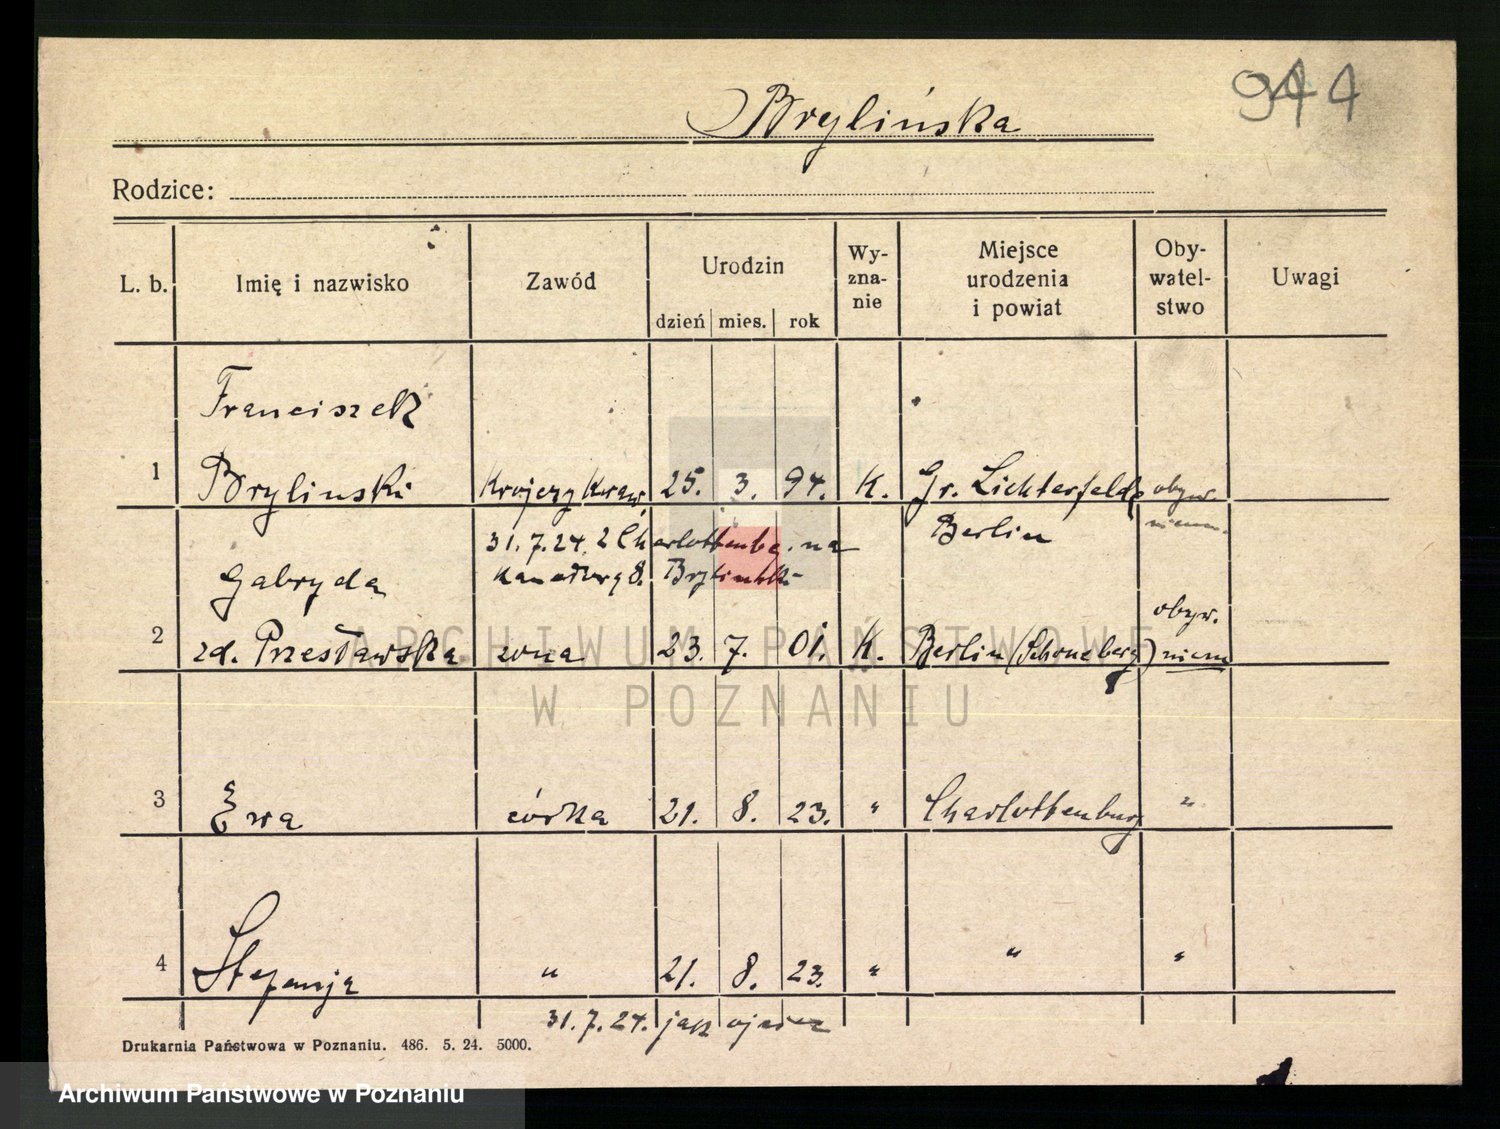 944
Brylińska
Rodzice:
L. b.
Imię i nazwisko
Zawód
Urodzin
dzień mies. rok
Wy-
zna-
nie
Miejsce
urodzenia
i powiat
Oby-
watel-
stwo
Uwagi
Franciszek
1 Brylinski Krojczy Kraw. 25. 3. 94. K. Gr. Lichterfelde obyw.
Berlin niem.
31.7.24. z Charlottenbg. na
8. Brylinski
Gabryda obyw.
2 zd. Przesławska żona 23. 7. 01. K. Berlin (Schoneberg) niem
3 Ewa córka 21. 8. 23. " Charlottenburg "
4 Stefanja " 21. 8. 23. " " "
31.7.24. jak ojciec
Drukarnia Państwowa w Poznaniu. 486. 5. 24. 5000.
ARCHIWUM PAŃSTWOWE
W POZNANIU
Archiwum Państwowe w Poznaniu